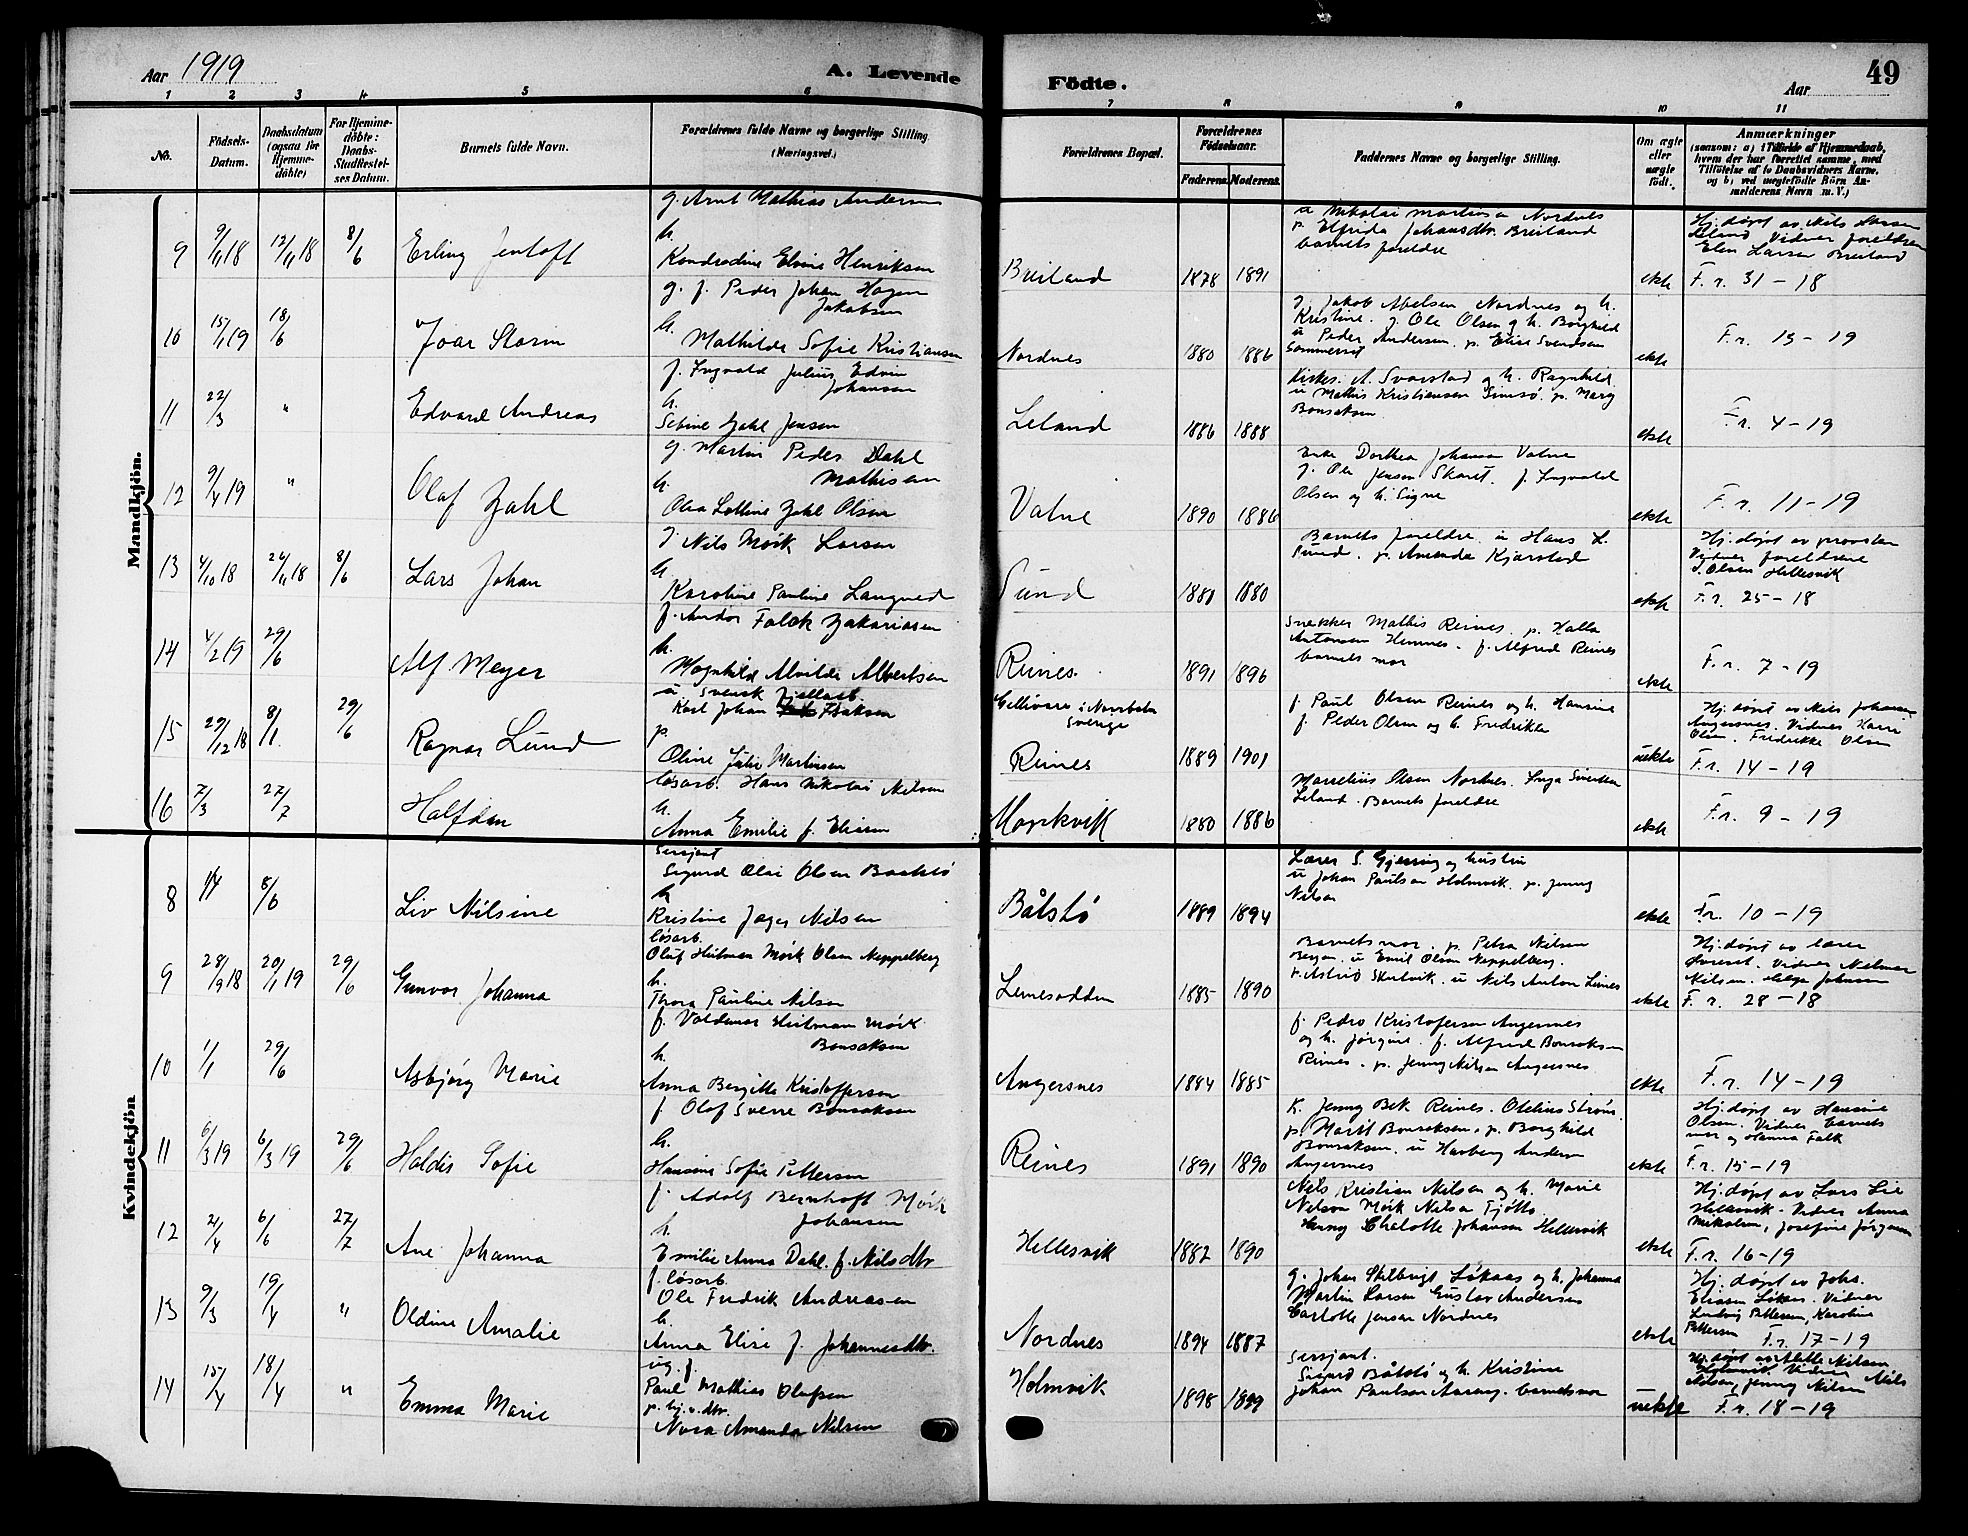 Aar 1919
A. Levende
Födte.
Aar
49
1 2 3 4 5 6 7 8 9 10 11
No.
Födsels-
Datum.
Daabsdatum
(ogsaa for
Hjemme-
döbte)
For Hjemme-
döbte:
Daabs-
Stadfæstel-
ses Datum.
Barnets fulde Navn.
Forældrenes fulde Navne og borgerlige Stilling.
(Næringsvei.)
Forældrenes Bopæl.
Forældrenes
Födselsaar.
Faderens. Moderens.
Faddernes Navne og borgerlige Stilling.
Om ægte
eller
uægte
født.
Anmærkninger
(saasom: a) i Tilfælde af Hjemmedaab,
hvem der har forrettet samme, med
Tilföielse af to Daabsvidners Navne,
og b) ved uegtefödte Börn An-
melderens Navn m. V.)
Mandkjön.
9 9/11 18 12/11 18 8/6 Erling Jentoft
g. Arnt Mathias Andersen
h.
Kondradine Elvine Henriksen
Breiland 1878 1891
u Nikolai Martinsen Nordnes
p. Elfrida Johansdtr. Breiland
barnets foreldre
ekte
Hj. døpt av Nils Larsen
Leland Vidner foreldrene
Elen Larsen Breiland
F. r. 31 - 18
10 15/1 19 18/6 Joar Storm
g. f. Peder Johan Hagen
Jakobsen
h.
Mathilde Sofie Kristiansen
Nordnes 1880 1886
J. Jakob Abelsen Nordnes og h.
Kristine. g. Ole Olsen og h. Borghild
u Peder Andersen. p. Elise Svendsen
Sommerset
ekte
F. r. 13 - 19
11 22/3 " Edvard Andreas
f. Ingvald Julius Edvin
Johansen
h.
Sebine Zahl Jensen
Leland 1886 1888
Kirkes. A. Svarstad og h. Ragnhild
u Mathis Kristiansen Simsø. p. Mary
Bonsaksen.
ekte
F. r. 4 - 19
12 9/4 19 " Olaf Zahl
g. Martin Peder Dahl
Mathisen
h.
Olea Lottine Zahl Olsen
Vatne 1890 1886
Enke Dorthea Johansen Vatne
g. Ole Jensen Skaret. f. Ingvald
Olsen og h. Signe
ekte
F. r. 11 - 19
13 4/10 18 26/11 18 8/6 Lars Johan
g Nils Mørk Larsen
h.
Karoline Pauline Langved
Sund 1880 1880
Barnets foreldre. u Hans L.
Sund. p. Amanda Kjærstad
ekte
Hj. døpt av provsten
Vidner foreldrene
J. Olsen Hellesvik
F. r. 25 - 18
14 4/2 19 29/6 Alf Meyer
f. Andor Falck Zakariasen
h.
Magnhild Alvilde Albertsen
Reines. 1891 1896
Snekker Mathis Reines. p. Halla
Antonsen Hemnes. f. Alfred Reines
barnets mor
ekte
F. r. 7 - 19
15 29/12 18 8/1. 29/6 Ragnar Lund
u. svensk fjellarb.
Karl Johan Isaksen
p.
Oline Julie Martinsen
Gellivare i Norrbotn
Sverige
Reines 1889 1901
f. Paul Olsen Reines og h. Hansine
f. Peder Olsen og h. Fredrikke
uekte
Hj. døpt av Nils Johansen
Angersnes. Vidner Harri
Olsen. Fredrikke Olsen
F. r. 14 - 19
16 7/3 27/7 Halfdan
løsarb. Hans Nikolai Nilsen
h.
Anna Emilie f. Eliasen
1880 1886
Marselius Olsen Nordnes. Inga Sivertsen
Leland. Barnets foreldre
ekte
F. r. 9 - 19
Kvindekjön
8 1/4 8/6 Liv Nilsine
Sersjant
Sigurd Olai Olsen Baatstø
h
Kristine Jager Nilsen
Båtstø 1889 1894
Lærer S. Gjerring og hustru
u Johan Paulsen Holmvik. p. Jenny
Nilsen
ekte
F. r. 10 - 19
9 28/9 18 20/1 19 29/6 Gunvor Johanna
løsarb.
Oluf Hutman Mørk Olsen Neppelberg
h.
Thora Pauline Nilsen
Leinesodden 1885 1890
Barnets mor. p. Petra Nilsen
Bergan. u Emil Olsen Neppelberg.
p. Astrid u Nils Anton Leines
ekte
Hj. døpt av lærer
Vidner Nielmer
Nilsen. Helga Johansen
F. r. 28 - 18
10 1/1 29/6 Asbjørg Marie
f. Valdemar Hutman Mørk
Bonsaksen
h.
Anna Bergitte Kristoffersen
Angersnes 1884 1885
f. Pedro Kristofersen Angersnes
og h. Jørgine. f. Alfred Bonsaksen
Reines. p. Jenny Nilsen Angersnes
ekte
F. r. 14 - 19
11 6/3 19 6/3 19 29/6 Haldis Sofie
f Olaf Sverre Bonsaksen
h.
Hansine Sofie Pettersen
Reines 1891 1890
K. Jenny Bek Reines. Otelius Strøm.
p. Marit Bonsaksen. p. Borghild
Bonsaksen. u Hartvig Andersen
Angersnes
ekte
Hj. døpt av Hansine
Olsen. Vidner barnets
mor og Hanna Falk
F. r. 15 - 19
12 24/4 6/6 27/7 Ane Johanna
f. Adolf Bernhoft Mørk
Johansen
h.
Emilie Anna Dahl. f. Nilsdtr
Hellesvik 1882 1890
Nils Kristian Nilsen og h. Marie
Nelson Mørk Nilsen Tjøtta
Henny Chalotte Johansen Hellesvik
ekte
Hj. døpt av Lars Lie
Hellesvik. Vidner Anna
Nikolsen, Josefine Jørgensen
F. r. 16 - 19
13 9/3 19/4 " Oldine Amalie
f. løsarb.
Ole Fredrik Andreasen
h.
Anna Elise f. Johannesdtr.
Nordnes 1894 1887
g. Johan Skilbrigt Løkaas og h. Johanna
Martin Larsen Gustav Andersen
Carlotte Jensen Nordnes
ekte
Hj. døpt av Johs.
Eliasen Vidner
Ludvig Pettersen, Karoline
Pettersen F. r. 17 - 19
14 15/4 18/4 " Emma Marie
ug. f.
Paul Mathias Olufsen
p. hj. v. dtr.
Nora Amanda Nilsen
Holmvik 1898 1899
Sersjant.
Sigurd Båtstø og h. Kristine
Johan Paulsen Aarang. barnets mor
uekte
Hj. døpt av Nilsen
Holmvik. Vidner Nils
Nilsen, Jenny Nilsen
F. r. 18 - 19